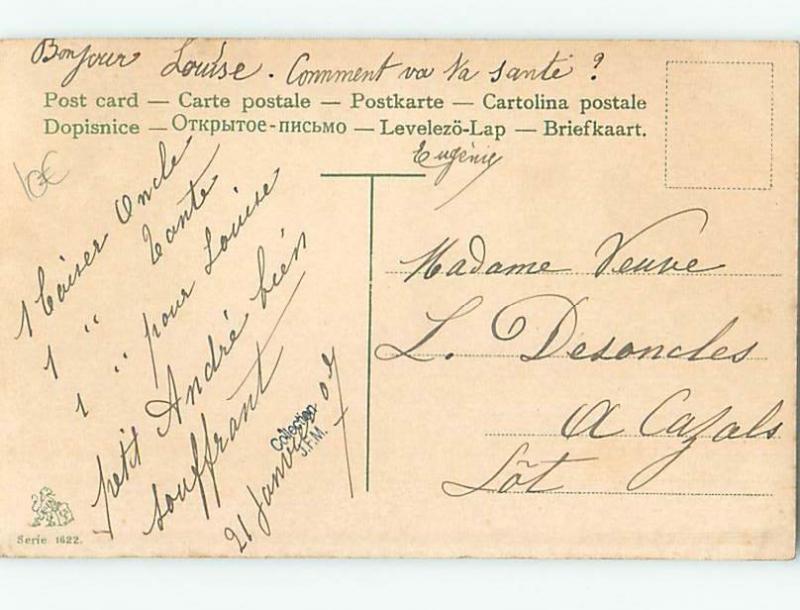 Bonjour Louise. Comment va ta santé ?
Post card — Carte postale — Postkarte — Cartolina postale
Dopisnice — Открытое-письмо — Levelezö-Lap — Briefkaart.
Eugénie
10€
1 baiser Oncle
1 " tante
1 " pour Louise
petit André bien
souffrant
21 Janvier 07
Collection
J.F.M.
Madame Veuve
L. Desoncles
A Cazals
Lot
Serie 1622.